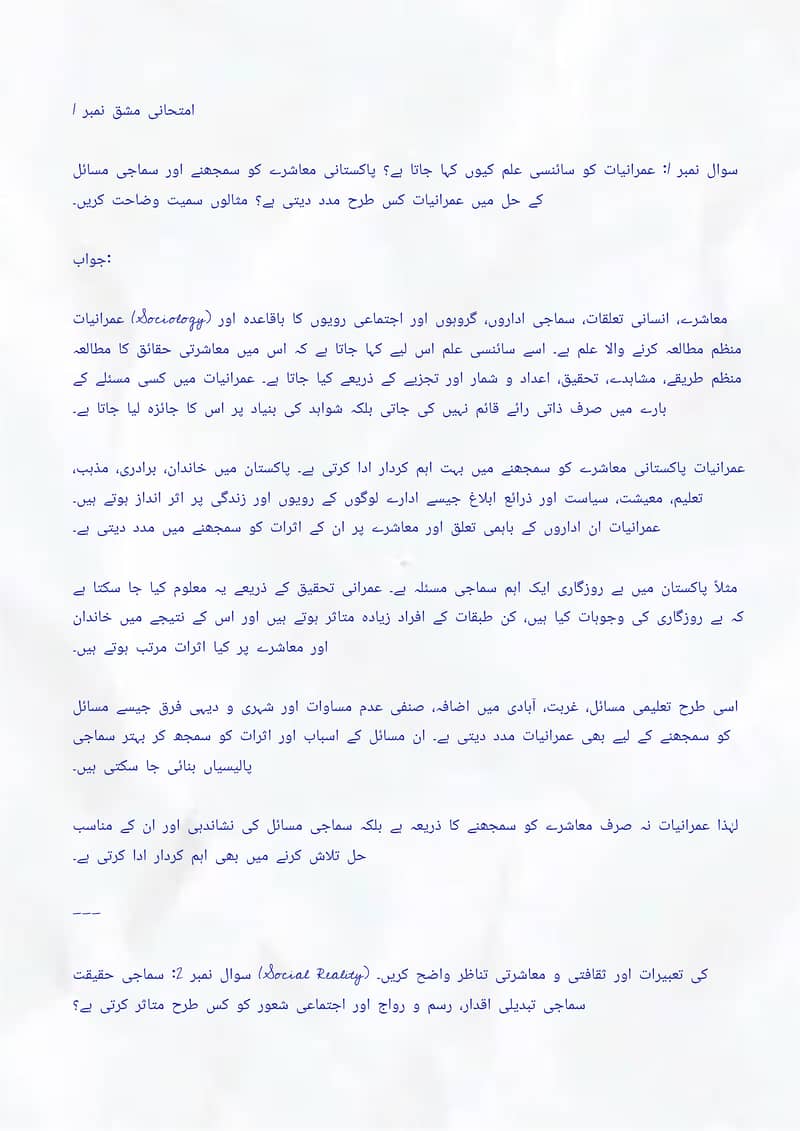 امتحانی مشق نمبر 1
سوال نمبر 1: عمرانیات کو سائنسی علم کیوں کہا جاتا ہے؟ پاکستانی معاشرے کو سمجھنے اور سماجی مسائل
کے حل میں عمرانیات کس طرح مدد دیتی ہے؟ مثالوں سمیت وضاحت کریں۔
جواب:
عمرانیات (Sociology) معاشرے، انسانی تعلقات، سماجی اداروں، گروہوں اور اجتماعی رویوں کا باقاعدہ اور
منظم مطالعہ کرنے والا علم ہے۔ اسے سائنسی علم اس لیے کہا جاتا ہے کہ اس میں معاشرتی حقائق کا مطالعہ
منظم طریقے، مشاہدے، تحقیق، اعداد و شمار اور تجزیے کے ذریعے کیا جاتا ہے۔ عمرانیات میں کسی مسئلے کے
بارے میں صرف ذاتی رائے قائم نہیں کی جاتی بلکہ شواہد کی بنیاد پر اس کا جائزہ لیا جاتا ہے۔
عمرانیات پاکستانی معاشرے کو سمجھنے میں بہت اہم کردار ادا کرتی ہے۔ پاکستان میں خاندان، برادری، مذہب،
تعلیم، معیشت، سیاست اور ذرائع ابلاغ جیسے ادارے لوگوں کے رویوں اور زندگی پر اثر انداز ہوتے ہیں۔
عمرانیات ان اداروں کے باہمی تعلق اور معاشرے پر ان کے اثرات کو سمجھنے میں مدد دیتی ہے۔
مثلاً پاکستان میں بے روزگاری ایک اہم سماجی مسئلہ ہے۔ عمرانی تحقیق کے ذریعے یہ معلوم کیا جا سکتا ہے
کہ بے روزگاری کی وجوہات کیا ہیں، کن طبقات کے افراد زیادہ متاثر ہوتے ہیں اور اس کے نتیجے میں خاندان
اور معاشرے پر کیا اثرات مرتب ہوتے ہیں۔
اسی طرح تعلیمی مسائل، غربت، آبادی میں اضافہ، صنفی عدم مساوات اور شہری و دیہی فرق جیسے مسائل
کو سمجھنے کے لیے بھی عمرانیات مدد دیتی ہے۔ ان مسائل کے اسباب اور اثرات کو سمجھ کر بہتر سماجی
پالیسیاں بنائی جا سکتی ہیں۔
لہٰذا عمرانیات نہ صرف معاشرے کو سمجھنے کا ذریعہ ہے بلکہ سماجی مسائل کی نشاندہی اور ان کے مناسب
حل تلاش کرنے میں بھی اہم کردار ادا کرتی ہے۔
---
سوال نمبر 2: سماجی حقیقت (Social Reality) کی تعبیرات اور ثقافتی و معاشرتی تناظر واضح کریں۔
سماجی تبدیلی اقدار، رسم و رواج اور اجتماعی شعور کو کس طرح متاثر کرتی ہے؟